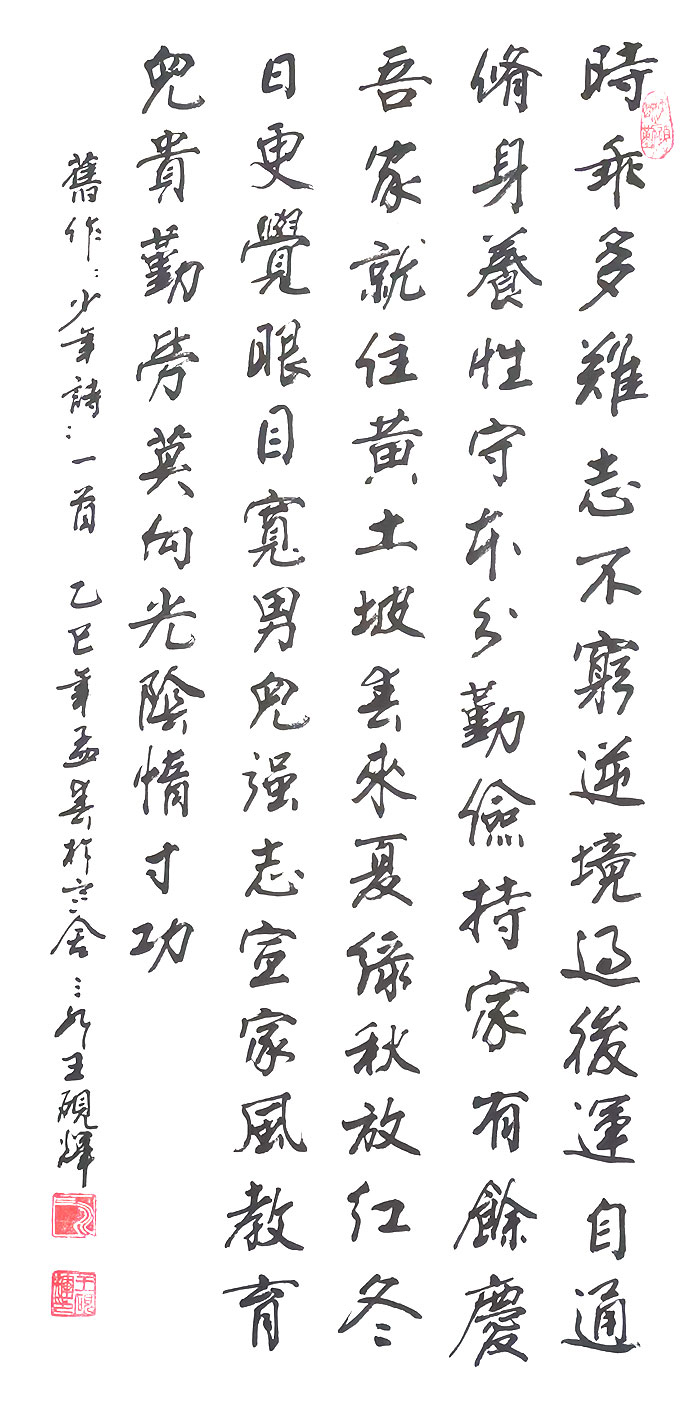 時乖多難志不窮逆境過後運自通
脩身養性守本分勤儉持家有餘慶
吾家就住黄土坡春來夏绿秋放红冬
日更覺眼目寬男兒强志宣家風教育
兒貴勤勞莫向光陰惰寸功
舊作：少年詩：一首 乙巳年孟春於
舍
王硯輝